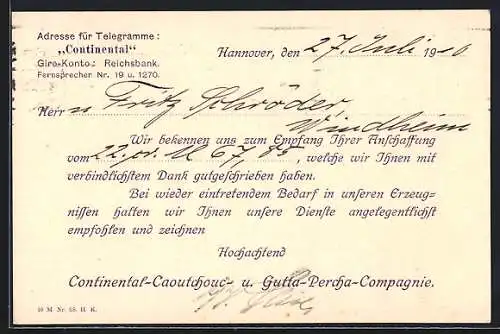 Adresse für Telegramme:
„Continental"
Giro-Konto: Reichsbank.
Fernsprecher Nr. 19 u. 1270.
Hannover, den 27. Juli 1910
Herrn Fritz Schröder
Windheim
Wir bekennen uns zum Empfang Ihrer Anschaffung
vom 22. cr. M 67.85, welche wir Ihnen mit
verbindlichstem Dank gutgeschrieben haben.
Bei wieder eintretendem Bedarf in unseren Erzeug-
nissen halten wir Ihnen unsere Dienste angelegentlichst
empfohlen und zeichnen
Hochachtend
Continental-Caoutchouc- u. Gutta-Percha-Compagnie.
10 M Nr. 48. H. K.